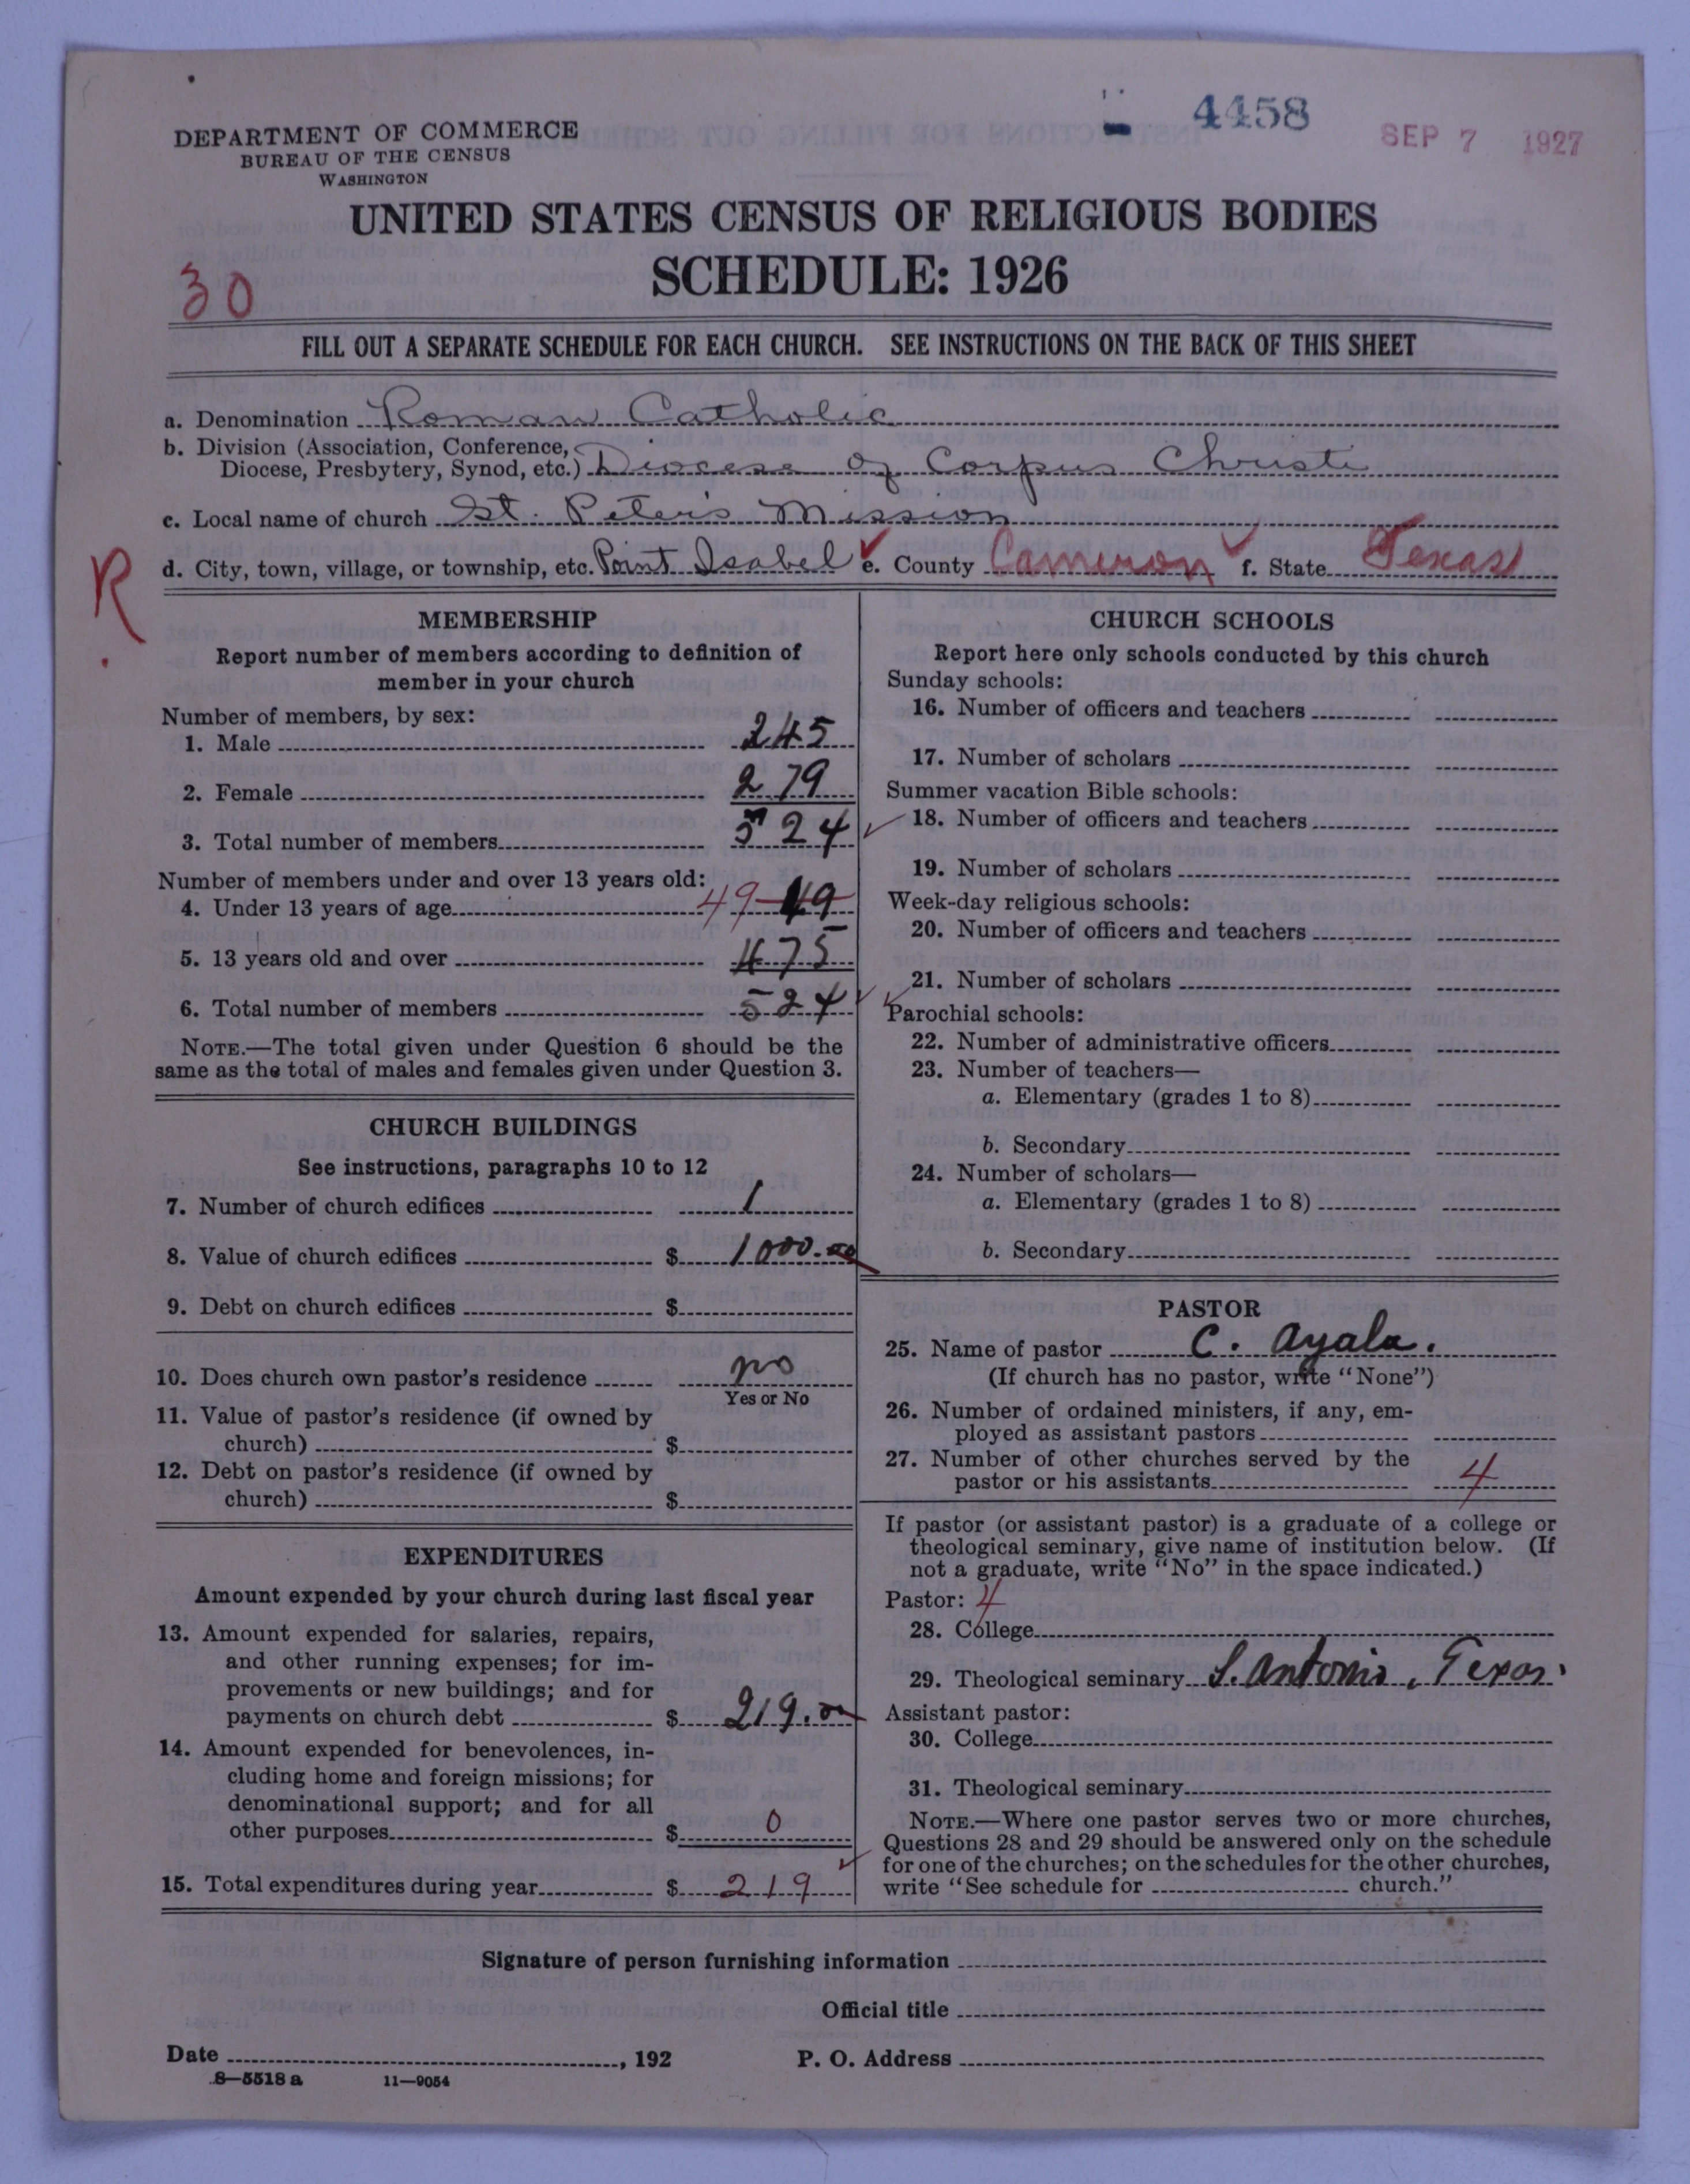 4458
SEP 7 1927
DEPARTMENT OF COMMERCE
BUREAU OF THE CENSUS
WASHINGTON
UNITED STATES CENSUS OF RELIGIOUS BODIES
SCHEDULE: 1926
30
FILL OUT A SEPARATE SCHEDULE FOR EACH CHURCH. SEE INSTRUCTIONS ON THE BACK OF THIS SHEET
a. Denomination Roman Catholic
b. Division (Association, Conference,
Diocese, Presbytery, Synod, etc.) Diocese of Corpus Christi
c. Local name of church St. Peter's Mission
d. City, town, village, or township, etc. Point Isabel e. County Cameron f. State Texas
R
MEMBERSHIP
Report number of members according to definition of
member in your church
Number of members, by sex:
1. Male 245
2. Female 279
3. Total number of members 524
Number of members under and over 13 years old:
4. Under 13 years of age 49 49
5. 13 years old and over 475
6. Total number of members 524
NOTE.—The total given under Question 6 should be the
same as the total of males and females given under Question 3.
CHURCH BUILDINGS
See instructions, paragraphs 10 to 12
7. Number of church edifices 1
8. Value of church edifices $ 1000.00
9. Debt on church edifices $
10. Does church own pastor's residence no
Yes or No
11. Value of pastor's residence (if owned by
church) $
12. Debt on pastor's residence (if owned by
church) $
EXPENDITURES
Amount expended by your church during last fiscal year
13. Amount expended for salaries, repairs,
and other running expenses; for im-
provements or new buildings; and for
payments on church debt $ 219.00
14. Amount expended for benevolences, in-
cluding home and foreign missions; for
denominational support; and for all
other purposes $ 0
15. Total expenditures during year $ 219
CHURCH SCHOOLS
Report here only schools conducted by this church
Sunday schools:
16. Number of officers and teachers
17. Number of scholars
Summer vacation Bible schools:
18. Number of officers and teachers
19. Number of scholars
Week-day religious schools:
20. Number of officers and teachers
21. Number of scholars
Parochial schools:
22. Number of administrative officers
23. Number of teachers—
a. Elementary (grades 1 to 8)
b. Secondary
24. Number of scholars—
a. Elementary (grades 1 to 8)
b. Secondary
PASTOR
25. Name of pastor C. Ayala.
(If church has no pastor, write "None")
26. Number of ordained ministers, if any, em-
ployed as assistant pastors
27. Number of other churches served by the
pastor or his assistants 4
If pastor (or assistant pastor) is a graduate of a college or
theological seminary, give name of institution below. (If
not a graduate, write "No" in the space indicated.)
Pastor: 4
28. College
29. Theological seminary S. Antonio, Texas.
Assistant pastor:
30. College
31. Theological seminary
NOTE.—Where one pastor serves two or more churches,
Questions 28 and 29 should be answered only on the schedule
for one of the churches; on the schedules for the other churches,
write "See schedule for church."
Signature of person furnishing information
Official title
Date , 192 P. O. Address
8—5518 a 11—9054